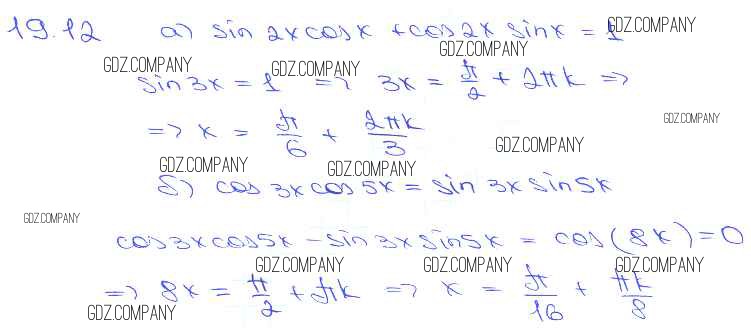 19.12 а) sin 2x cos x + cos 2x sin x = 1 GDZ.COMPANY
GDZ.COMPANY GDZ.COMPANY GDZ.COMPANY
sin 3x = 1 => 3x = π/2 + 2πk =>
=> x = π/6 + 2πk/3 GDZ.COMPANY
GDZ.COMPANY GDZ.COMPANY GDZ.COMPANY
б) cos 3x cos 5x = sin 3x sin 5x
GDZ.COMPANY
cos 3x cos 5x - sin 3x sin 5x = cos(8x) = 0
GDZ.COMPANY GDZ.COMPANY GDZ.COMPANY
=> 8x = π/2 + πk => x = π/16 + πk/8
GDZ.COMPANY